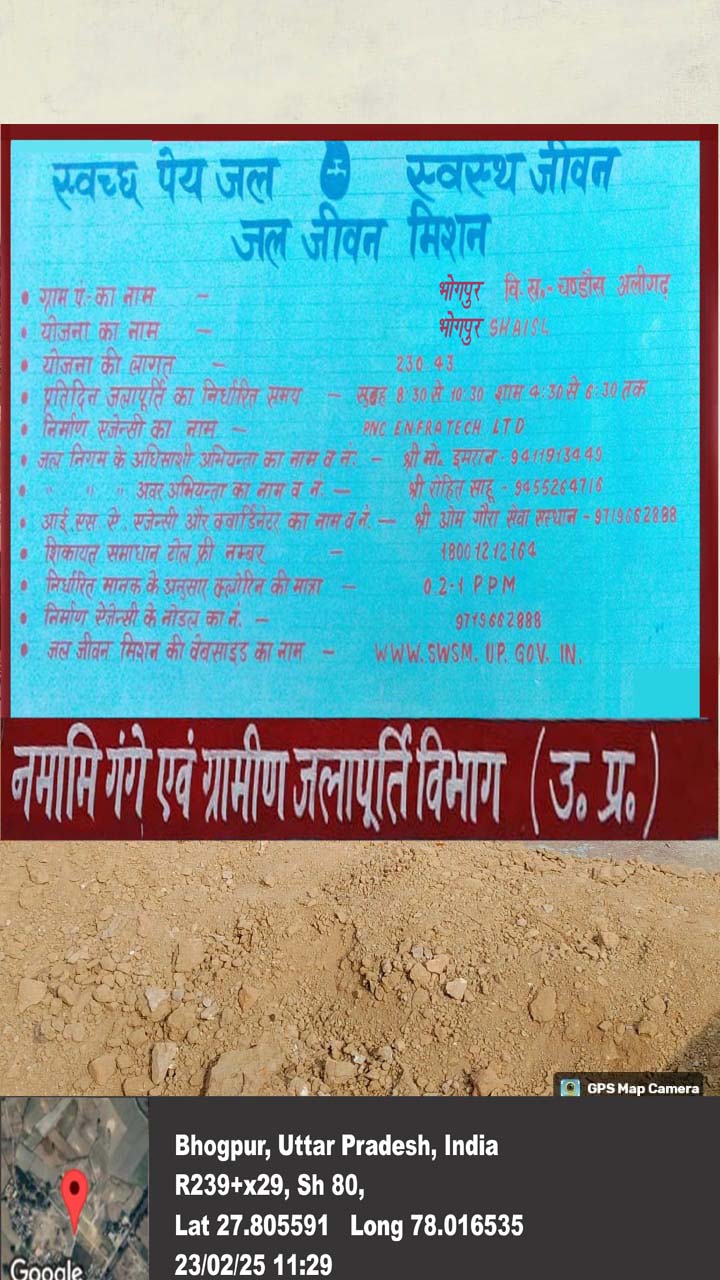 स्वच्छ पेय जल स्वस्थ जीवन
जल जीवन मिशन
• ग्राम पं:- का नाम - भोगपुर वि.ख.- चण्डौस अलीगढ़
• योजना का नाम - भोगपुर SHAISL
• योजना की लागत - 230.43
• प्रतिदिन जलापूर्ति का निर्धारित समय - सुबह 8:30 से 10:30 शाम 4:30 से 6:30 तक
• निर्माण एजेन्सी का नाम - PNC ENFRATECH LTD
• जल निगम के अधिसाशी अभियन्ता का नाम व नं. - श्री मो. इमरान - 9411913449
• " " " अवर अभियन्ता का नाम व नं. - श्री रोहित साहू - 9455264716
• आई. एस. ए. एजेन्सी और क्वार्डिनेटर का नाम व नं. - श्री ओम गौरा सेवा संस्थान - 9719662888
• शिकायत समाधान टोल फ्री नम्बर - 18001212164
• निर्धारित मानक के अनुसार क्लोरिन की मात्रा - 0.2-1 PPM
• निर्माण ऐजेन्सी के नोडल का नं. - 9719662888
• जल जीवन मिशन की वेबसाइड का नाम - WWW.SWSM.UP.GOV.IN.
नमामि गंगे एवं ग्रामीण जलापूर्ति विभाग (उ. प्र.)
GPS Map Camera
Bhogpur, Uttar Pradesh, India
R239+x29, Sh 80,
Lat 27.805591 Long 78.016535
23/02/25 11:29
Google